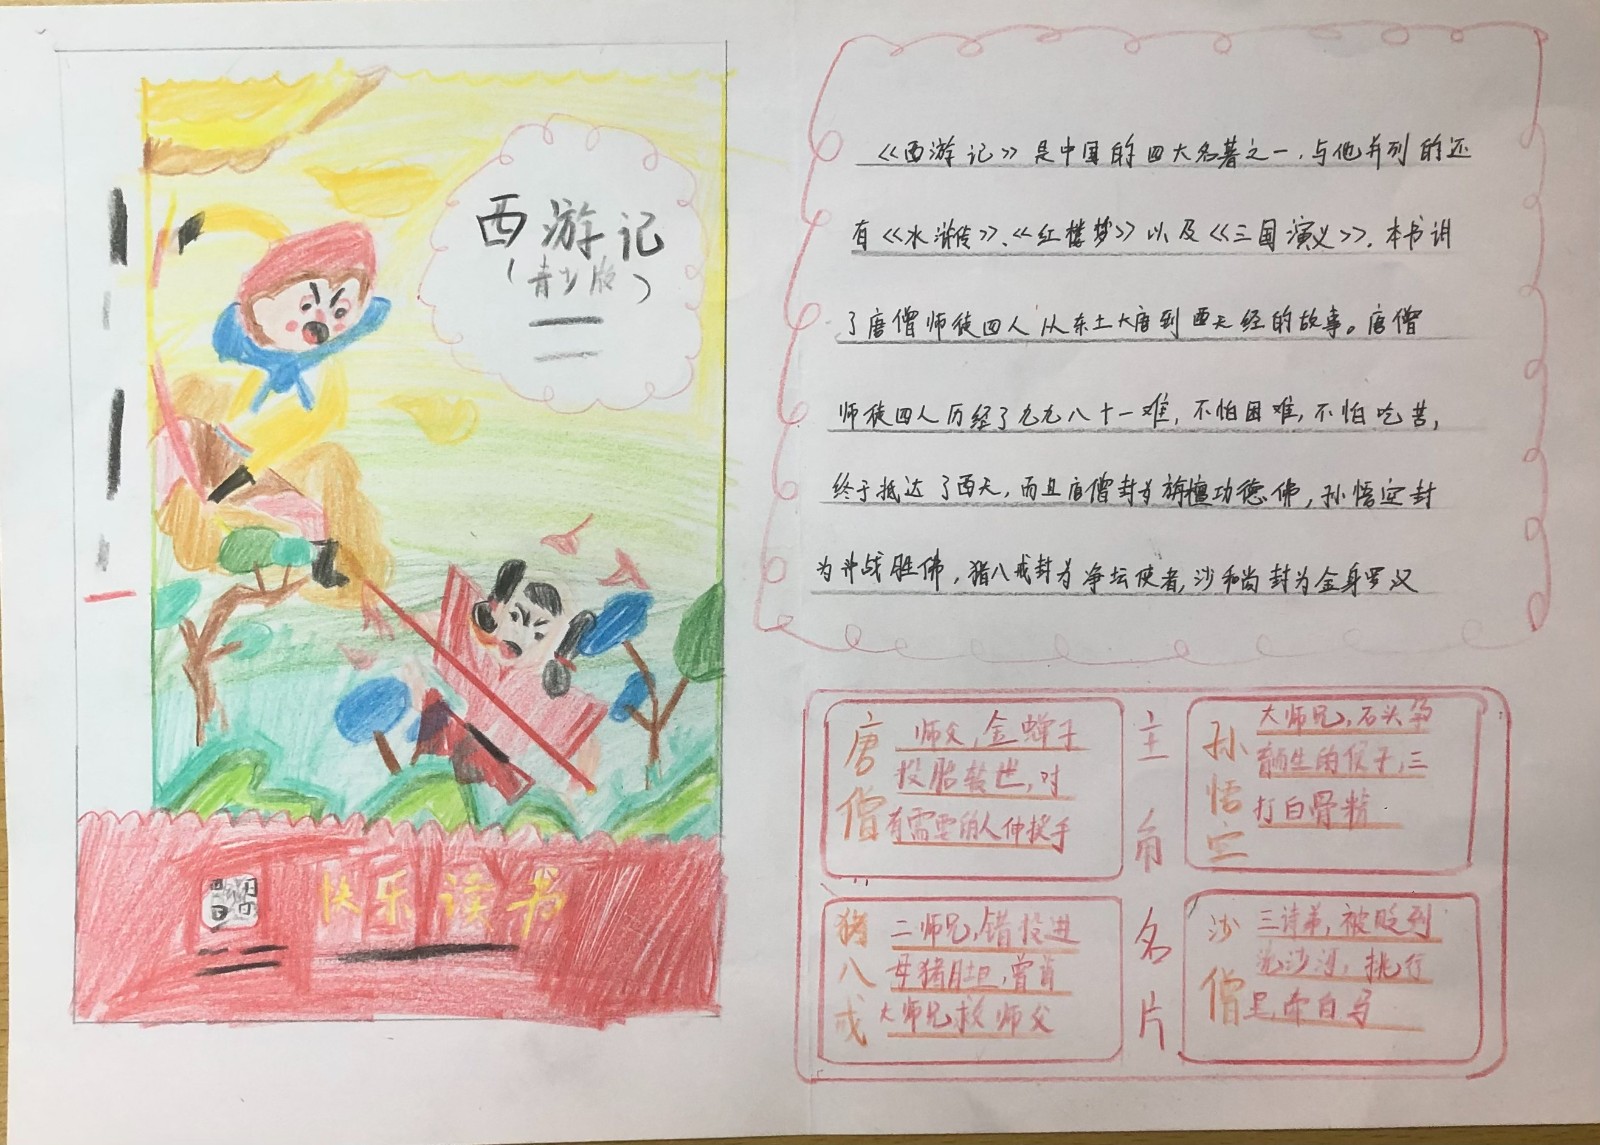 西游记
（青少版）
快乐读书
《西游记》是中国的四大名著之一，与他并列的还
有《水浒传》、《红楼梦》以及《三国演义》，本书讲
了唐僧师徒四人从东土大唐到西天经的故事。唐僧
师徒四人历经了九九八十一难，不怕困难，不怕吃苦，
终于抵达了西天，而且唐僧封为旃檀功德佛，孙悟空封
为斗战胜佛，猪八戒封为净坛使者，沙和尚封为金身罗汉
主角名片
唐僧
师父，金蝉子
投胎转世，对
有需要的人伸援手
孙悟空
大师兄，石头孕
育而生的猴子，三
打白骨精
猪八戒
二师兄，错投进
母猪肚，曾
大师兄救师父
沙僧
三师弟，被贬到
流沙河，挑行
牵白马